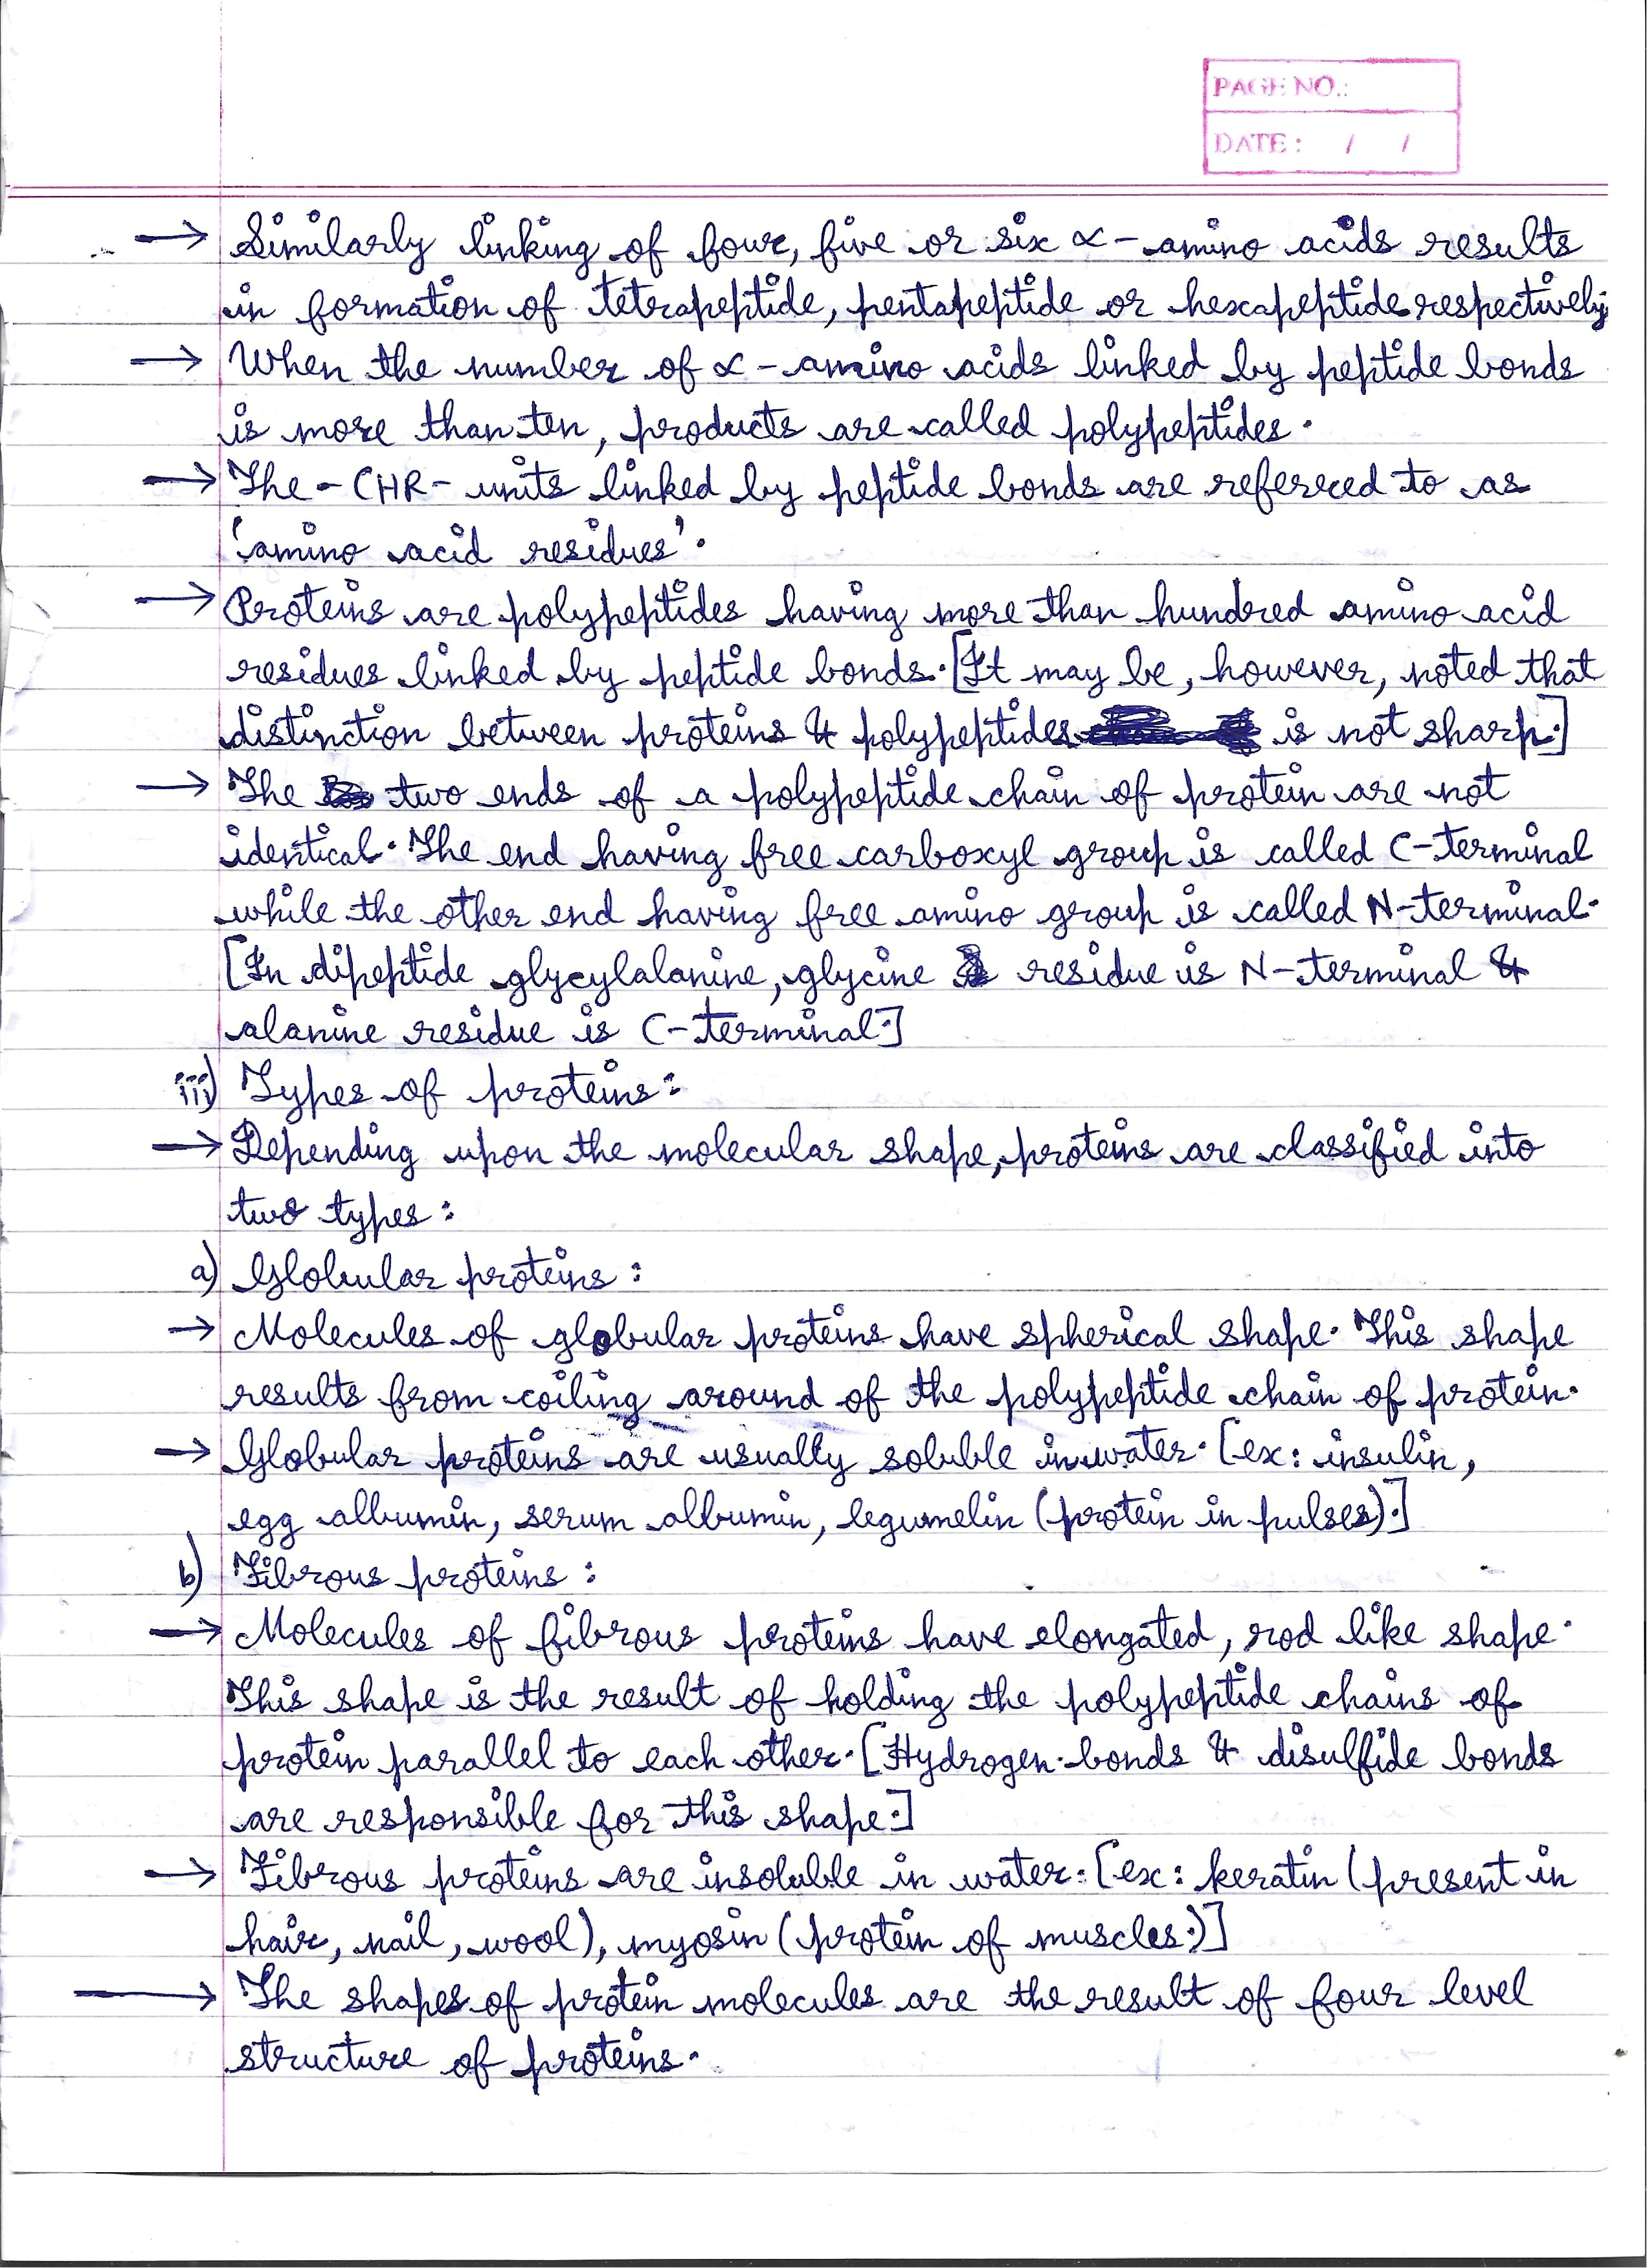 PAGE NO.:
DATE : / /
→ Similarly linking of four, five or six ∝-amino acids results
in formation of tetrapeptide, pentapeptide or hexapeptide respectively.
→ When the number of ∝-amino acids linked by peptide bonds
is more than ten, products are called polypeptides.
→ The -CHR- units linked by peptide bonds are referred to as
'amino acid residues'.
→ Proteins are polypeptides having more than hundred amino acid
residues linked by peptide bonds. [It may be, however, noted that
distinction between proteins & polypeptides is not sharp.]
→ The two ends of a polypeptide chain of protein are not
identical. The end having free carboxyl group is called C-terminal
while the other end having free amino group is called N-terminal.
[In dipeptide glycylalanine, glycine residue is N-terminal &
alanine residue is C-terminal.]
iii) Types of proteins:
→ Depending upon the molecular shape, proteins are classified into
two types:
a) Globular proteins:
→ Molecules of globular proteins have spherical shape. This shape
results from coiling around of the polypeptide chain of protein.
→ Globular proteins are usually soluble in water. [ex: insulin,
egg albumin, serum albumin, legumelin (protein in pulses).]
b) Fibrous proteins:
→ Molecules of fibrous proteins have elongated, rod like shape.
This shape is the result of holding the polypeptide chains of
protein parallel to each other. [Hydrogen bonds & disulfide bonds
are responsible for this shape.]
→ Fibrous proteins are insoluble in water. [ex: keratin (present in
hair, nail, wool), myosin (protein of muscles.)]
→ The shapes of protein molecules are the result of four level
structure of proteins.